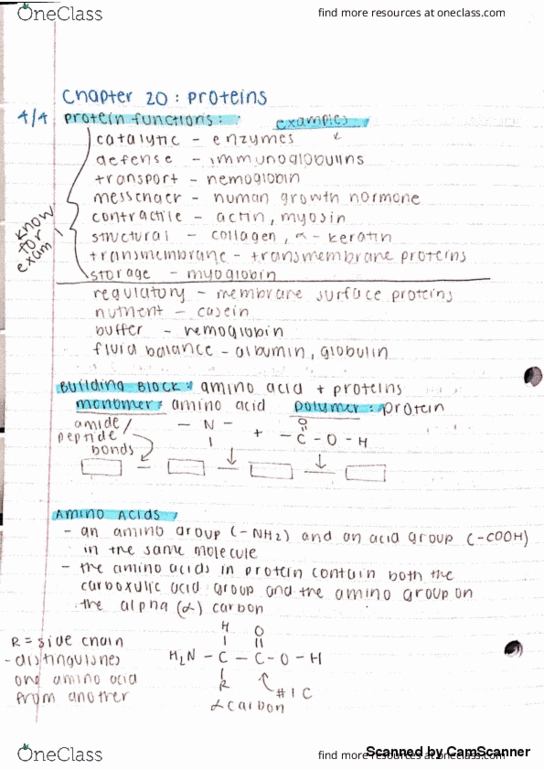 OneClass
find more resources at oneclass.com
Chapter 20: Proteins
4/4 protein functions: examples
catalytic - enzymes
defense - immunoglobulins
transport - hemoglobin
messenger - human growth hormone
contractile - actin, myosin
structural - collagen, α-keratin
transmembrane - transmembrane proteins
storage - myoglobin
know for exam!
regulatory - membrane surface proteins
nutrient - casein
buffer - hemoglobin
fluid balance - albumin, globulin
Building Block: amino acid + proteins
monomer: amino acid polymer: protein
amide/
peptide
bonds
- N - + - C - O - H
O
Amino Acids:
- an amino group (-NH2) and an acid group (-COOH)
in the same molecule
- the amino acids in protein contain both the
carboxylic acid group and the amino group on
the alpha (α) carbon
R = side chain
- distinguishes
one amino acid
from another
H O
H2N - C - C - O - H
R #1 C
α carbon
OneClass
find more resources at oneclass.com
Scanned by CamScanner